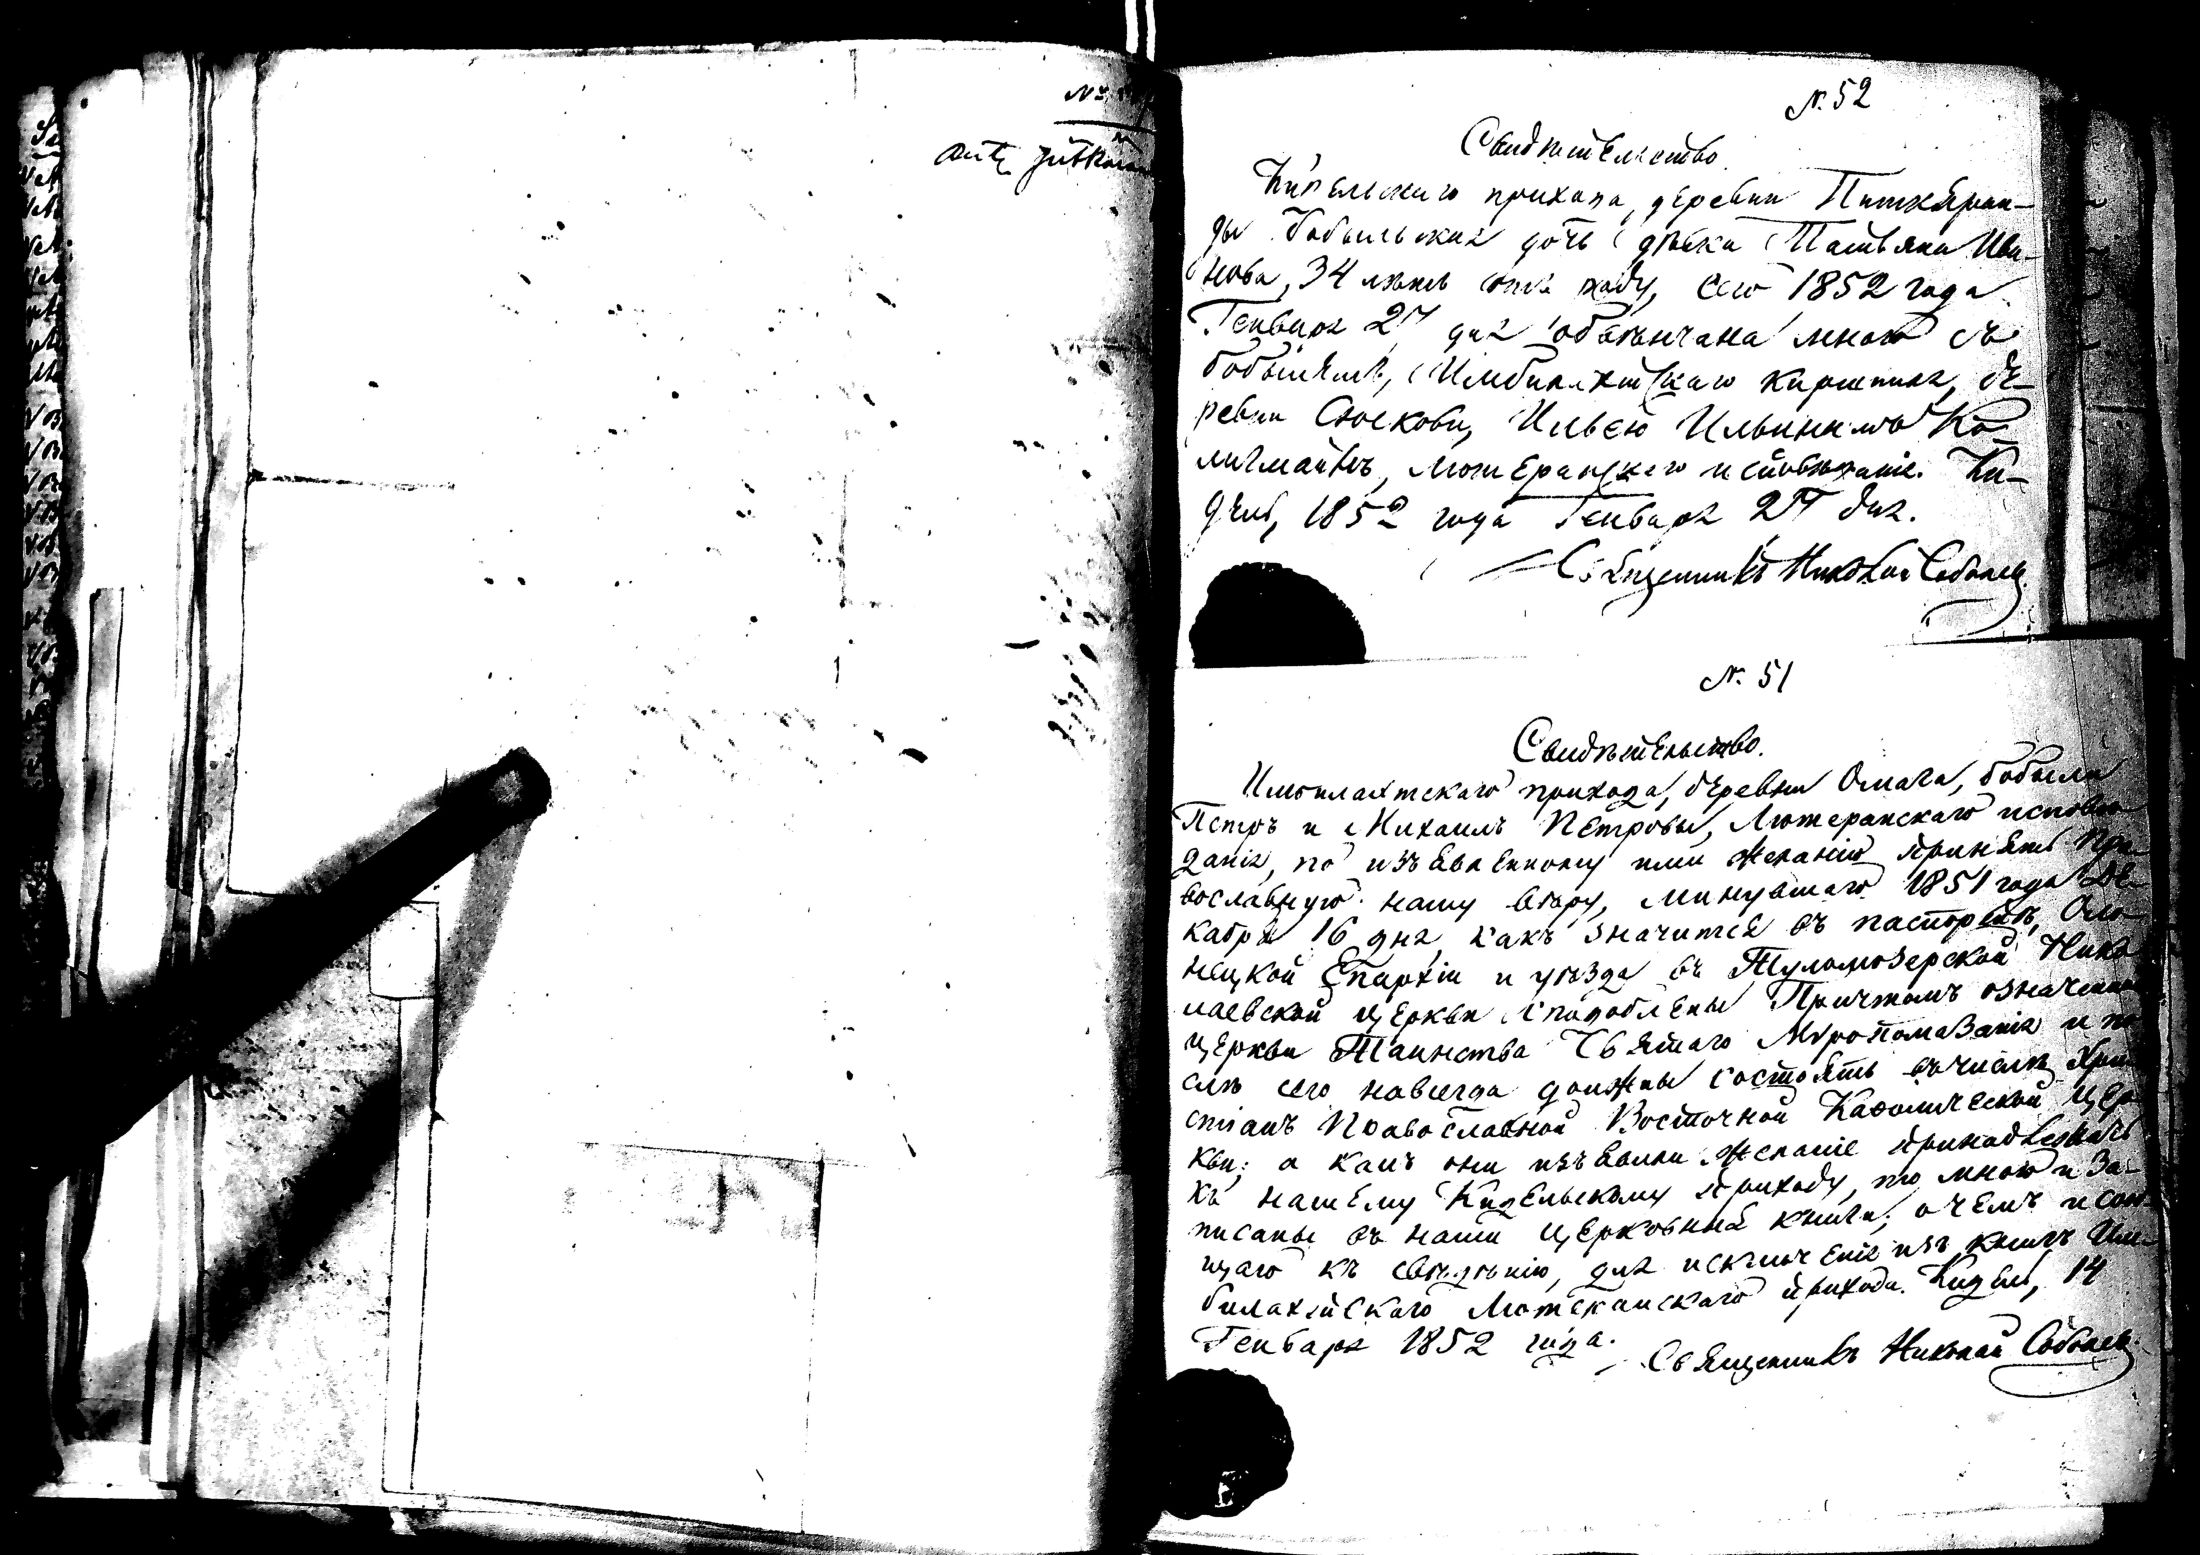 № 52
Свидѣтельство.
Кидельскаго прихода, деревни Питкяран-
ды бобыльская дочь дѣвка Татьяна Ива-
нова, 34 лѣтъ отъ роду, сего 1852 года
Генваря 27 дня обвѣнчана мною съ
бобылемъ, Имбилахтскаго кирхшпиля, де-
ревни Сюскови, Ильею Ильинымъ
Лютеранскаго исповѣданія. Ки-
дель, 1852 года Генваря 27 дня.
Священникъ Николай Соболевъ
№ 51
Свидѣтельство.
Имбилахтскаго прихода, деревни Омага, бобыли
Петръ и Михаилъ Петровы, Лютеранскаго исповѣ-
данія, по изъявленному ими желанію принять пра-
вославную нашу вѣру, минувшаго 1851 года Де-
кабря 16 дня, какъ значится въ паспортѣ, Оло-
нецкой Епархіи и уѣзда въ Туломозерской Нико-
лаевской церкви сподоблены Причтомъ означенной
церкви Таинства Святаго Мѵропомазанія и по-
слѣ сего навсегда должны состоять въ числѣ Хри-
стіанъ Православной Восточной Каѳолической Цер-
кви; а какъ они изъявили желаніе принадлежать
къ нашему Кидельскому приходу, то мною и за-
писаны въ наши церковныя книги; о чемъ и сооб-
щаю къ свѣдѣнію, для исключенія изъ книгъ Им-
билахтскаго Лютеранскаго прихода. Кидель, 14
Генваря 1852 года.
Священникъ Николай Соболевъ